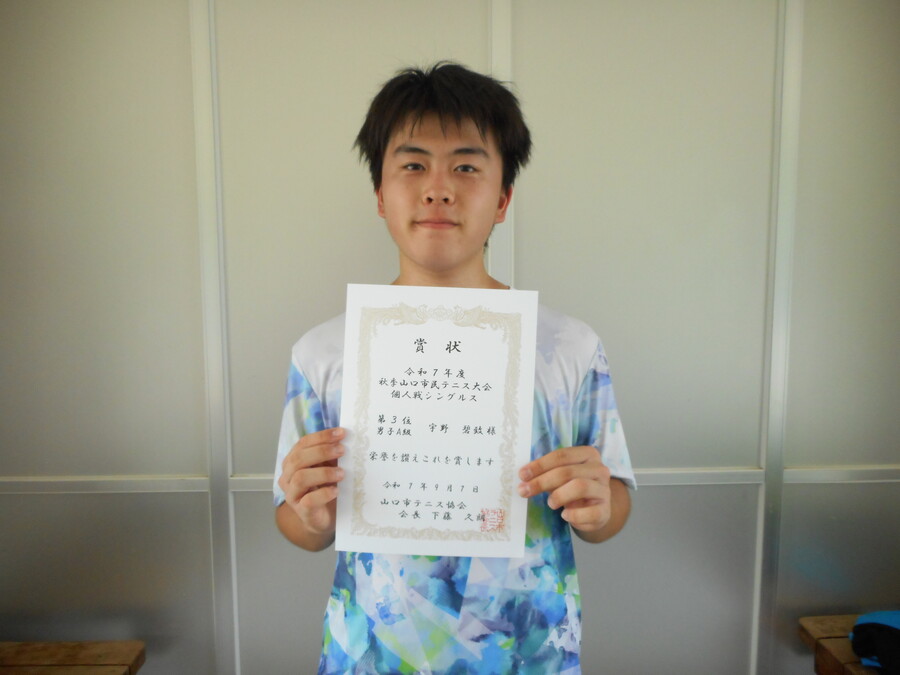 賞状
令和7年度
秋季山口市民テニス大会
個人戦シングルス
第3位
男子A級 宇野 碧致様
栄誉を讃えこれを賞します
令和7年9月7日
山口市テニス協会
会長 下藤